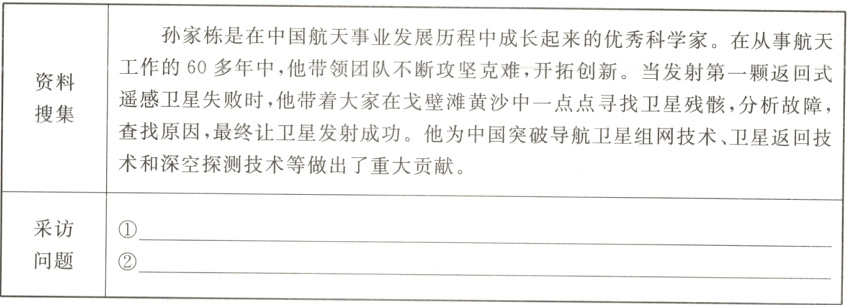 资料
搜集
孙家栋是在中国航天事业发展历程中成长起来的优秀科学家。在从事航天
工作的 60 多年中,他带领团队不断攻坚克难,开拓创新。当发射第一颗返回式
遥感卫星失败时,他带着大家在戈壁滩黄沙中一点点寻找卫星残骸,分析故障,
查找原因,最终让卫星发射成功。他为中国突破导航卫星组网技术、卫星返回技
术和深空探测技术等做出了重大贡献。
采访
问题
①
②